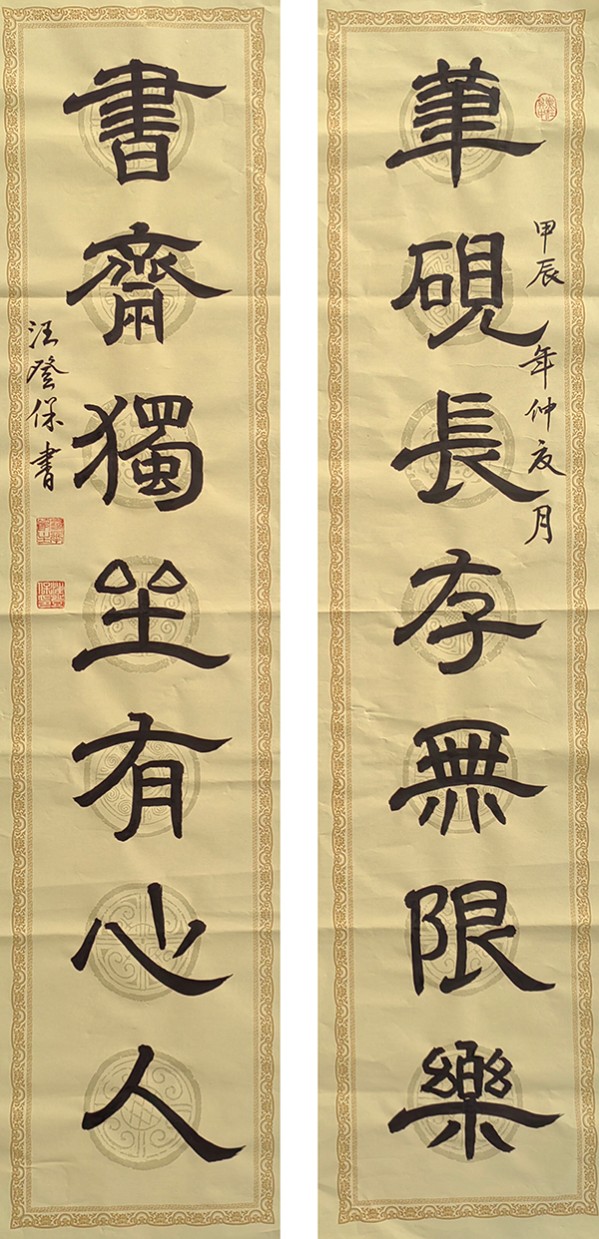 甲辰年仲夏月
筆硯長存無限樂
書齋獨坐有心人
汪登保書